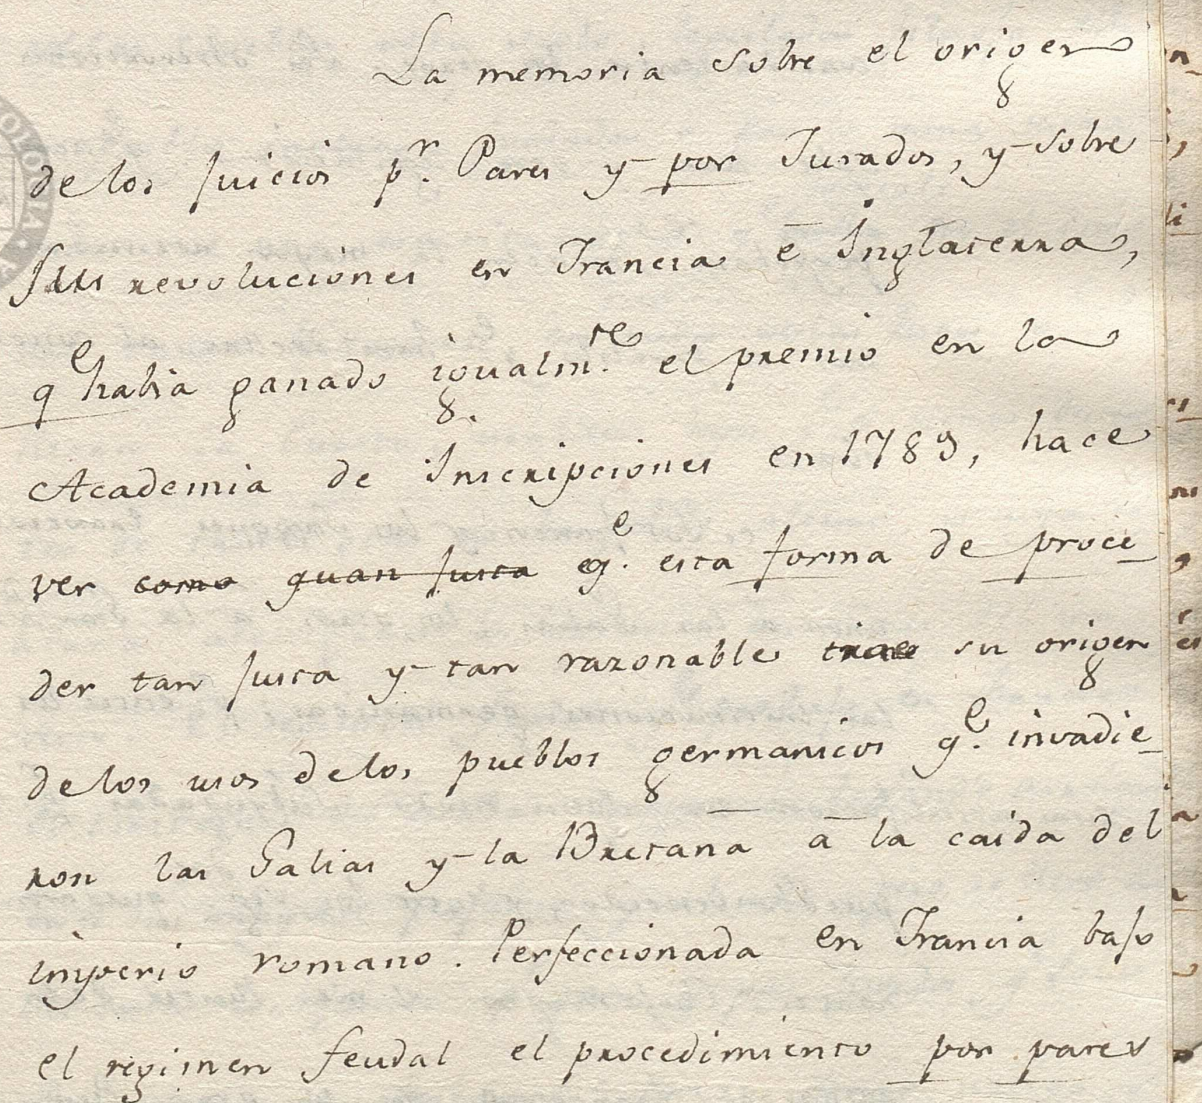 La memoria sobre el origen
de los Juicios pr. Pares y por Jurados, y sobre
sus revoluciones en Francia é Inglaterra,
qe habia ganado igualmte. el premio en la
Academia de Inscripciones en 1789, hace
ver como quan justa qe. esta forma de proce
der tan justa y tan razonable trae su origen
de los usos de los pueblos germanicos qe. invadie_
ron las Galias y la Bretaña á la caida del
imperio romano. Perfeccionada en Francia bajo
el regimen feudal el procedimiento por pares